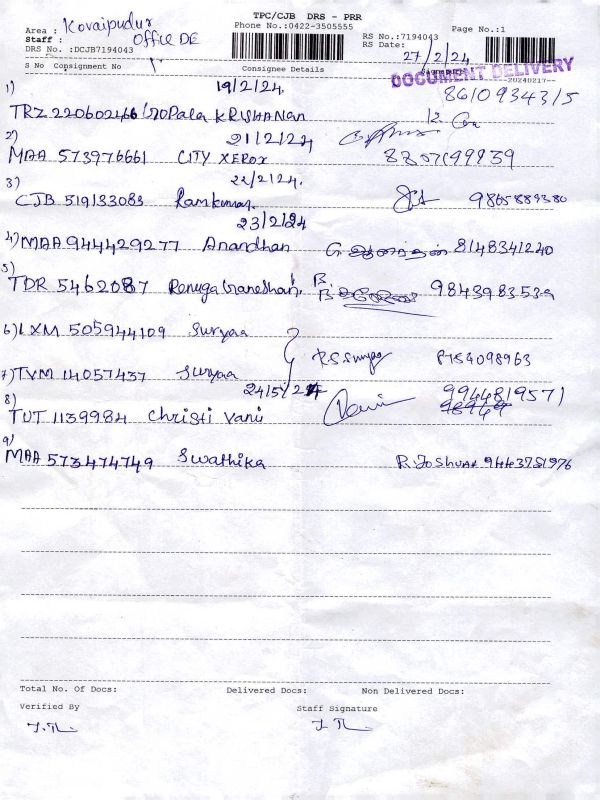 TPC/CJB DRS - PRR
Phone No.:0422-3505555
Area : Kovaipudur
Staff : Office DE
DRS No. :DCJB7194043
RS No.:7194043
RS Date: 27/2/24
Page No.:1
DOCUMENT DELIVERY
--20240217--
S No Consignment No Consignee Details Signature
19/2/24
8610934315
1) TRZ 220602466 Gopala KRISHANAN
21/2/24
2) MAA 573976661 CITY XEROX
22/2/24.
3) CJB 519133083 Ramkumar 9865889380
23/2/24
4) MAA 944429277 Anandhan G. ஆனந்தன் 8148341240
5) TDR 5462087 Renuga Ganeshan 9843983539
6) LXM 505944109 Suryaa
7) TVM 14057437 Suryaa
24/5/24
9944819571
8) TUT 1139984 Christi Vani
9) MAA 573474749 Swathika R. Joshuaa 9443751976
Total No. Of Docs: Delivered Docs: Non Delivered Docs:
Verified By Staff Signature